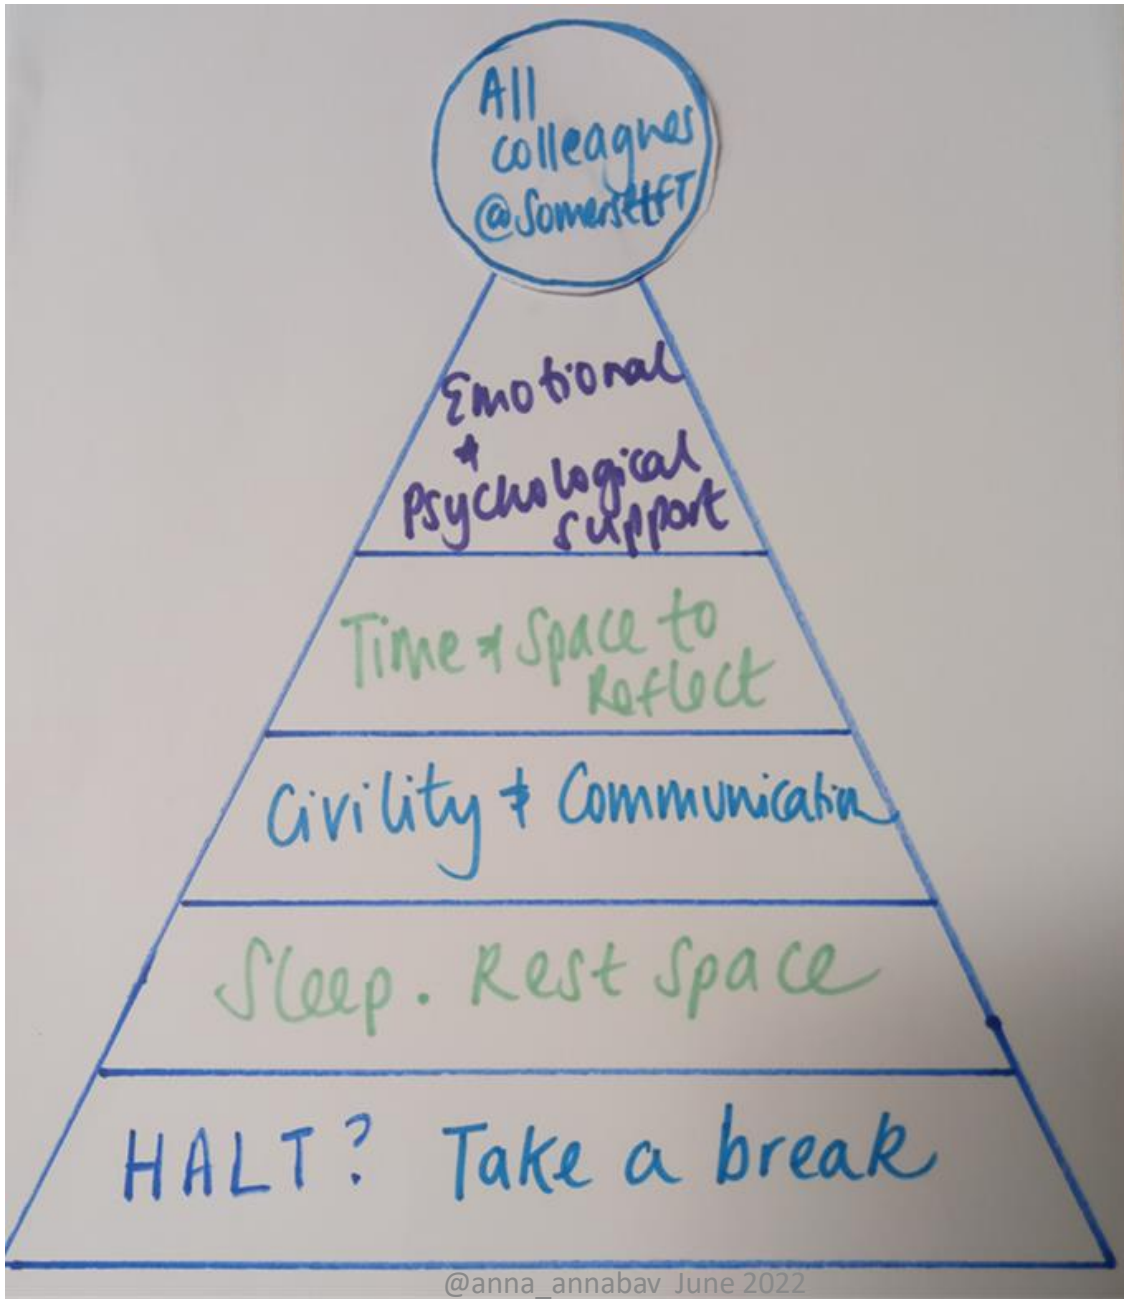 All
colleagues
@SomersetFT
Emotional
+
Psychological
support
Time + Space to
Reflect
Civility + Communication
Sleep. Rest Space
HALT? Take a break
@anna_annabav June 2022